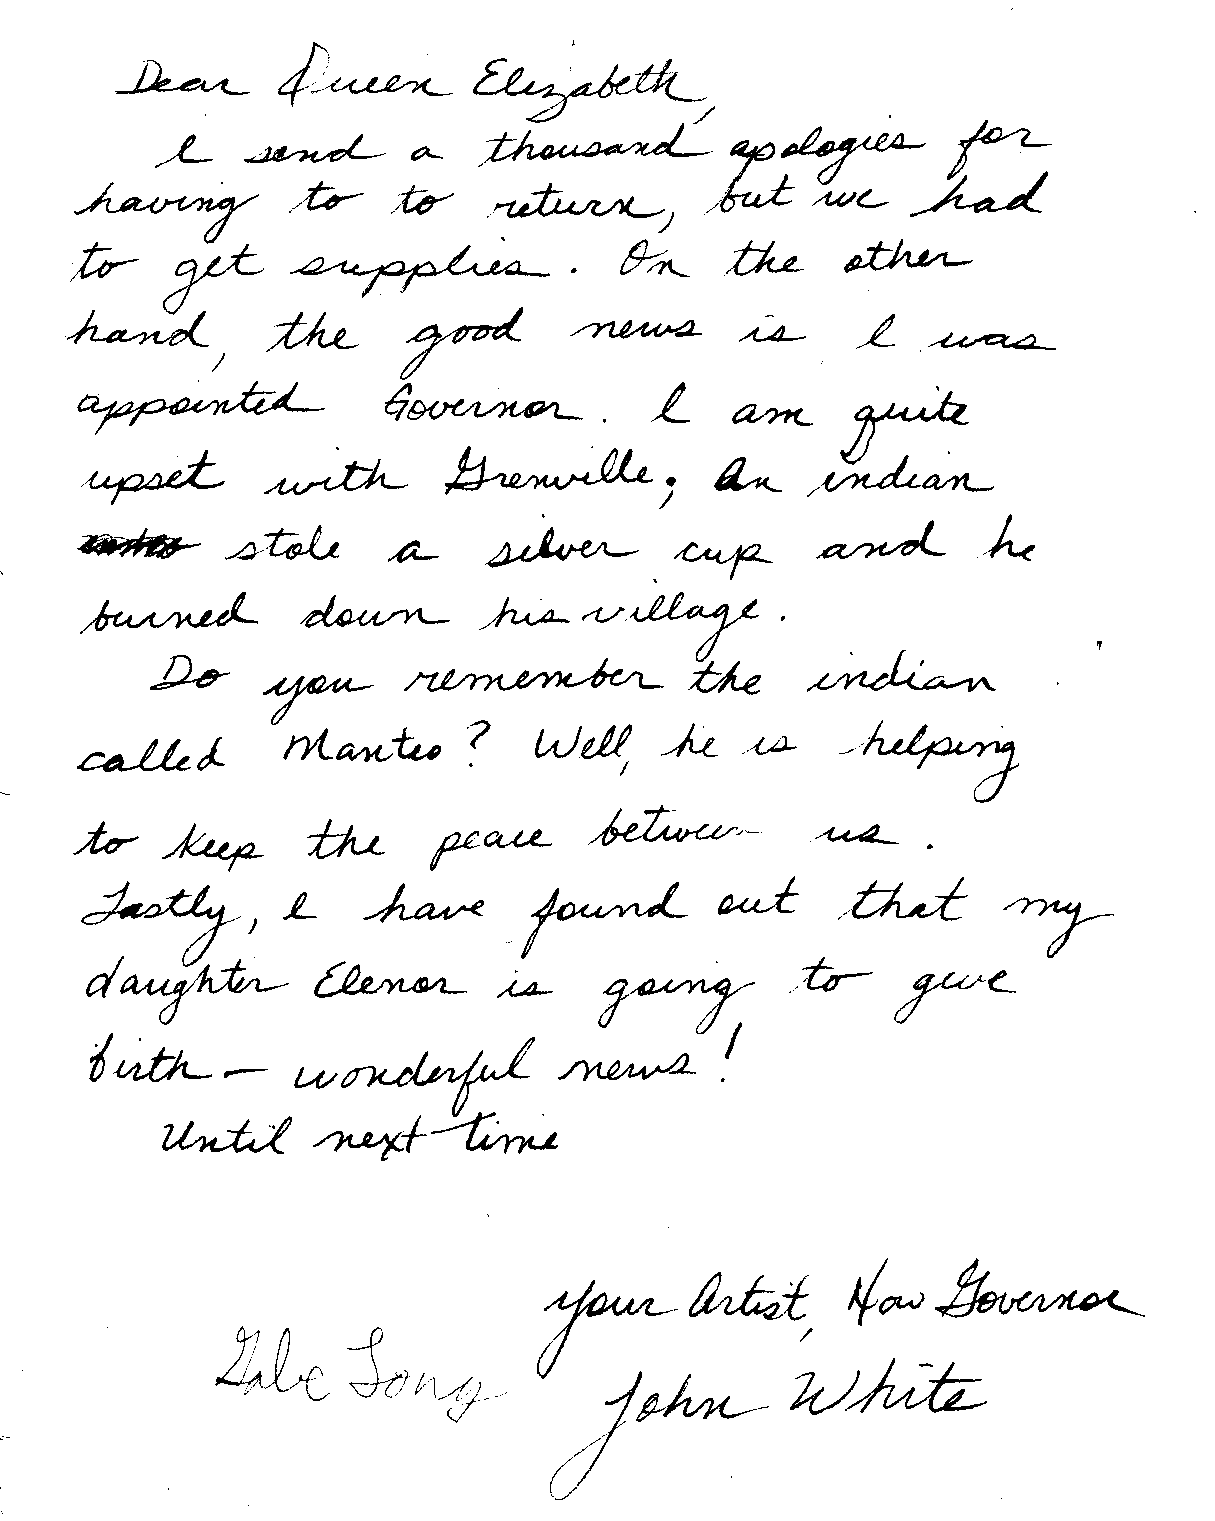 Dear Queen Elizabeth,
I send a thousand apologies for
having to to return, but we had
to get supplies. On the other
hand, the good news is I was
appointed Governor. I am quite
upset with Grenville; An indian
stole a silver cup and he
burned down his village.
Do you remember the indian
called Manteo? Well, he is helping
to keep the peace between us.
Lastly, I have found out that my
daughter Elenor is going to give
birth — wonderful news!
Until next time
your Artist, Now Governor
Gabe Long
John White